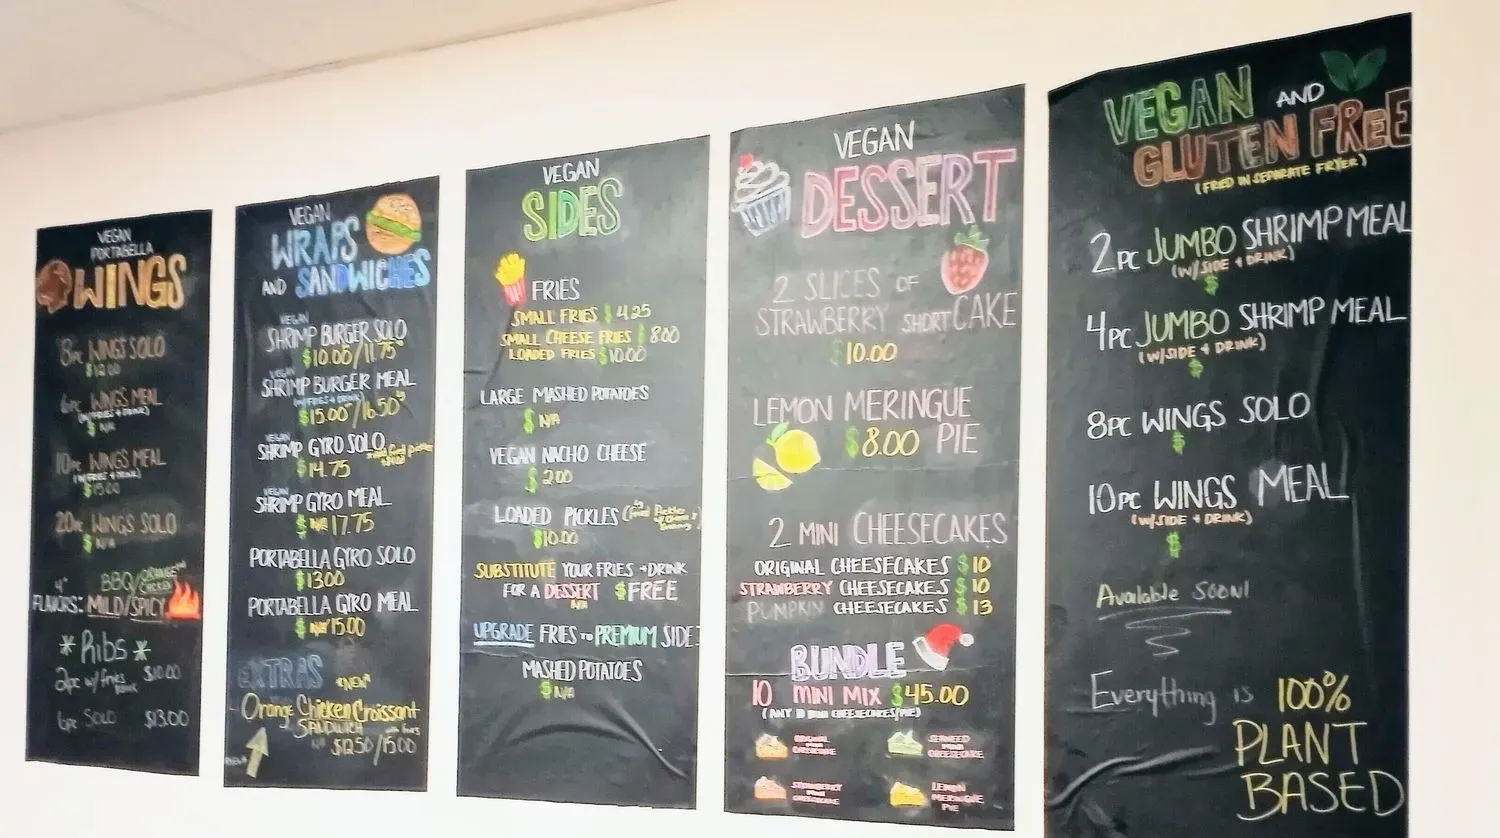 VEGAN
PORTABELLA
WINGS
8pc WINGS SOLO
$12.00
6pc WINGS MEAL
(W/FRIES + DRINK)
$ N/A
10pc WINGS MEAL
(W/FRIES + DRINK)
$15.00
20pc WINGS SOLO
$ N/A
BBQ/ORANGE CHICKEN
FLAVORS: MILD/SPICY
*Ribs*
2pc w/fries $10.00
DRINK
6pc SOLO $13.00
VEGAN
WRAPS
AND SANDWICHES
VEGAN
SHRIMP BURGER SOLO
$10.00/11.75
VEGAN
SHRIMP BURGER MEAL
(W/FRIES + DRINK)
$15.00/16.50
VEGAN
SHRIMP GYRO SOLO
$14.75
VEGAN
SHRIMP GYRO MEAL
$ N/A 17.75
PORTABELLA GYRO SOLO
$13.00
PORTABELLA GYRO MEAL
$ N/A 15.00
EXTRAS
*NEW*
Orange Chicken Croissant
SANDWICH with fries
$12.50/15.00
VEGAN
SIDES
FRIES
SMALL FRIES $4.25
SMALL CHEESE FRIES $8.00
LOADED FRIES $10.00
LARGE MASHED POTATOES
$ N/A
VEGAN NACHO CHEESE
$2.00
LOADED PICKLES (Fried Pickles
$10.00
SUBSTITUTE YOUR FRIES + DRINK
FOR A DESSERT $FREE
N/A
UPGRADE FRIES TO PREMIUM SIDE:
MASHED POTATOES
$ N/A
VEGAN
DESSERT
2 SLICES OF
STRAWBERRY SHORTCAKE
$10.00
LEMON MERINGUE
$8.00 PIE
2 MINI CHEESECAKES
ORIGINAL CHEESECAKES $10
STRAWBERRY CHEESECAKES $10
PUMPKIN CHEESECAKES $13
BUNDLE
10 MINI MIX $45.00
(ANY 10 MINI CHEESECAKES/PIE)
ORIGINAL
MINI
CHEESECAKE
SEAWEED
MINI
CHEESECAKE
STRAWBERRY
MINI
CHEESECAKE
LEMON
MERINGUE
PIE
VEGAN AND
GLUTEN FREE
(FRIED IN SEPARATE FRYER)
2PC JUMBO SHRIMP MEAL
(W/SIDE + DRINK)
$
4PC JUMBO SHRIMP MEAL
(W/SIDE + DRINK)
$
8PC WINGS SOLO
$
10PC WINGS MEAL
(W/SIDE + DRINK)
$
Available Soon!
Everything is 100%
PLANT
BASED